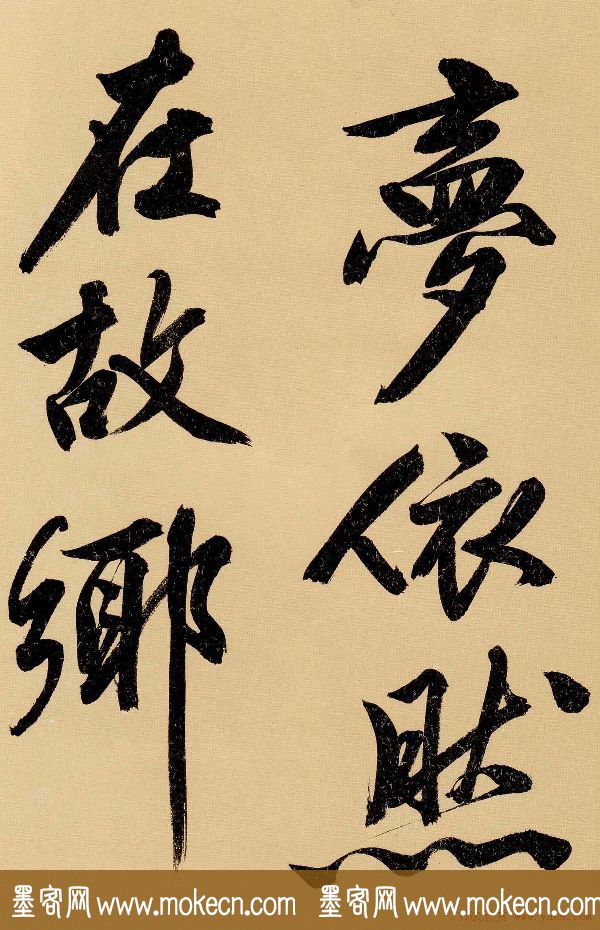 夢依然
在故鄉
墨客网 www.mokecn.com 墨客网 www.mokecn.com